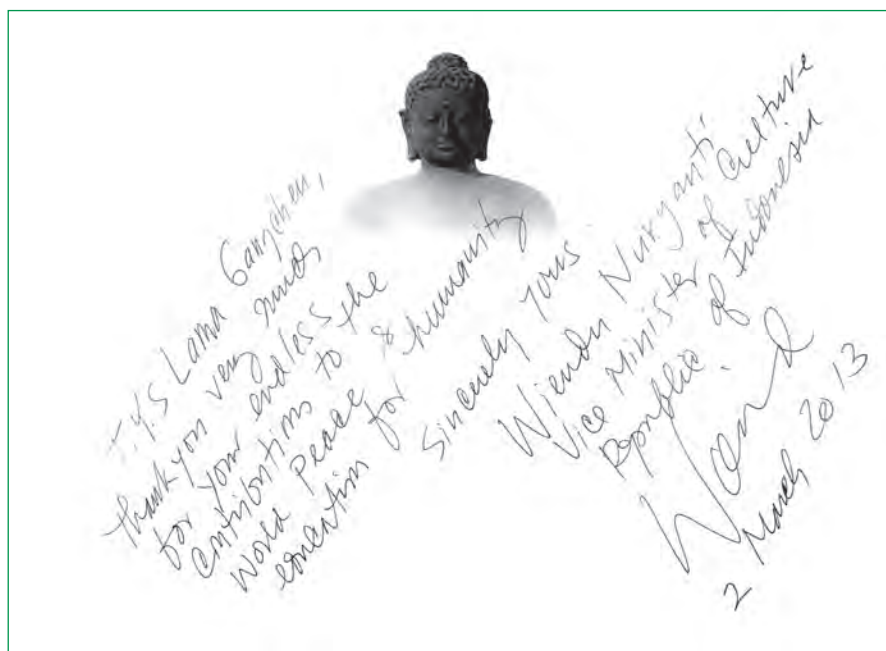 T.Y.S Lama Gangchen,
Thank you very much
for your endless
contributions to the
World Peace &
education for humanity
Sincerely Yours
Wiendu Nuryanti
Vice Minister of Culture
Republic of Indonesia
2 March 2013